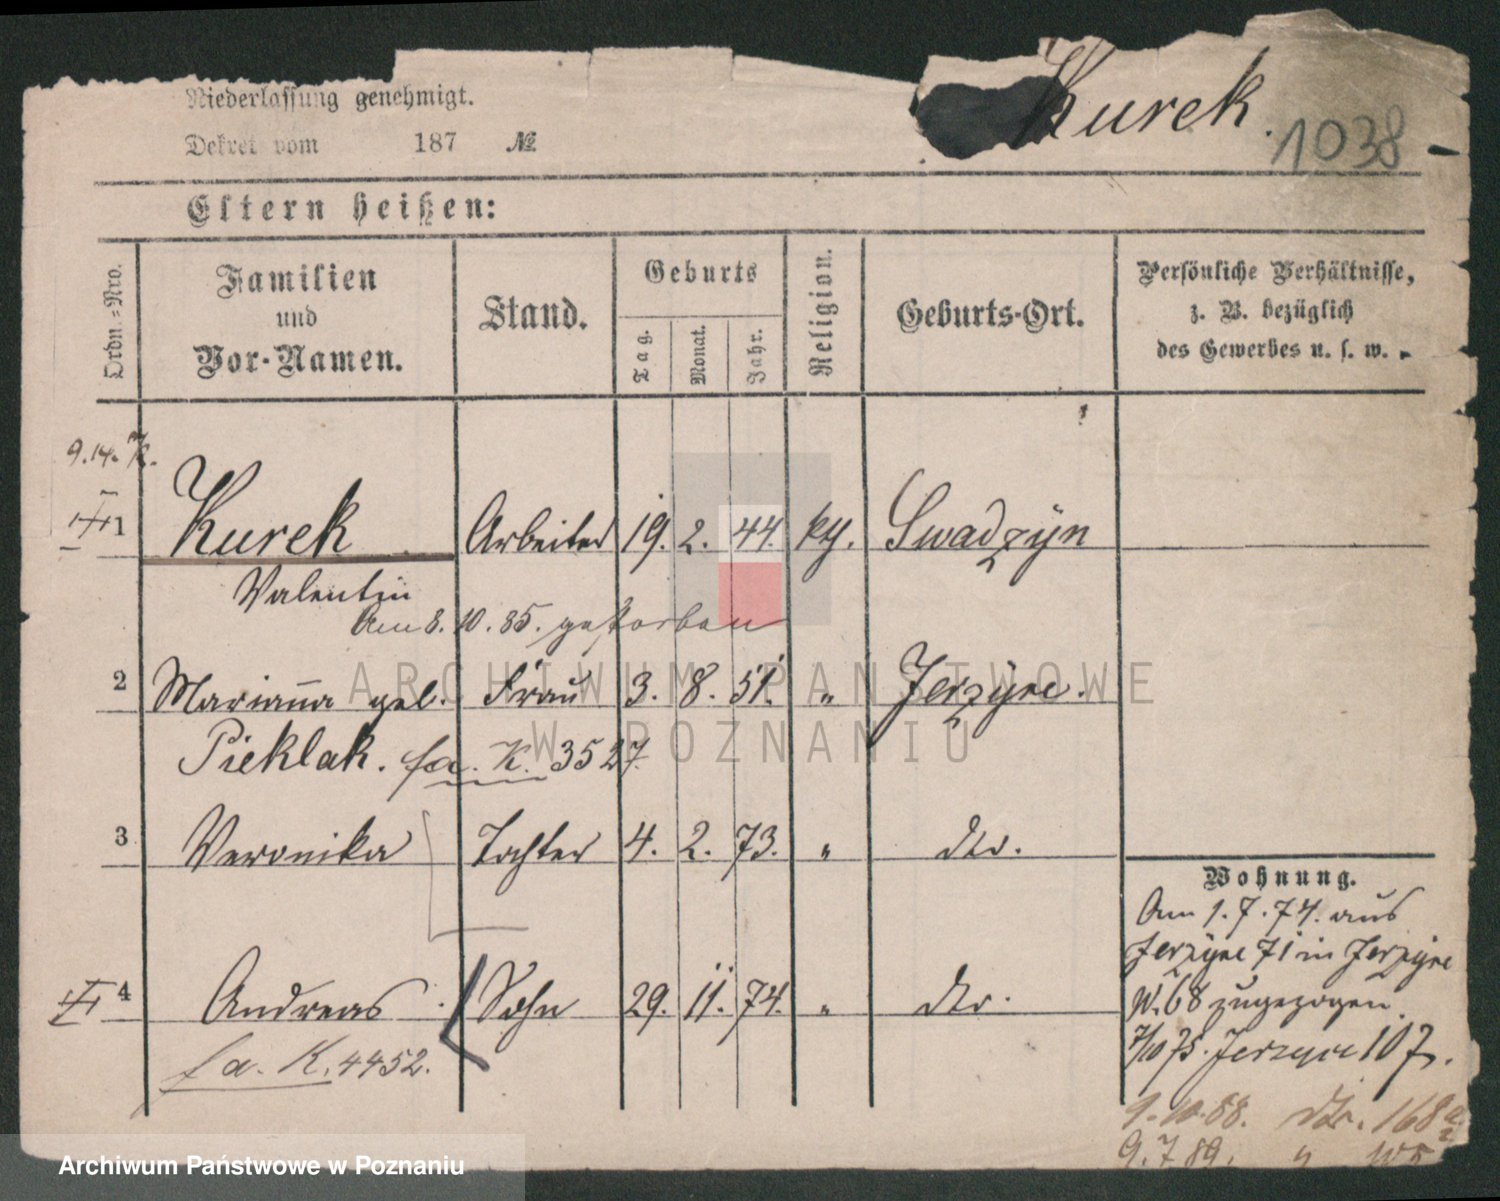 Niederlassung genehmigt.
Kurek.
1038
Dekret vom 187 №
Eltern heißen:
Ordn.-Nro.
Familien
und
Vor-Namen.
Stand.
Geburts
Tag.
Monat.
Jahr.
Religion.
Geburts-Ort.
Persönliche Verhältnisse,
z. B. bezüglich
des Gewerbes u. s. w.
9.14.
1 Kurek Arbeiter 19. 2. 44. kth. Swadzyn
Valentin
Am 8. 10. 85. gestorben
2 Marianna geb. Frau 3. 8. 51. " Jerzyce.
Pieklak. fa. K. 3527
3 Veronika Tochter 4. 2. 73. " dto.
4 Andreas Sohn 29. 11. 74. " dto.
fa. K. 4452.
Wohnung.
Am 1. 7. 74. aus
Jerzyce 71 in Jerzyce
N. 68 zugezogen.
7/10 75. Jerzyce 107.
1.10.88. dto. 168a
9.7.89. "
ARCHIWUM PAŃSTWOWE
W POZNANIU
Archiwum Państwowe w Poznaniu